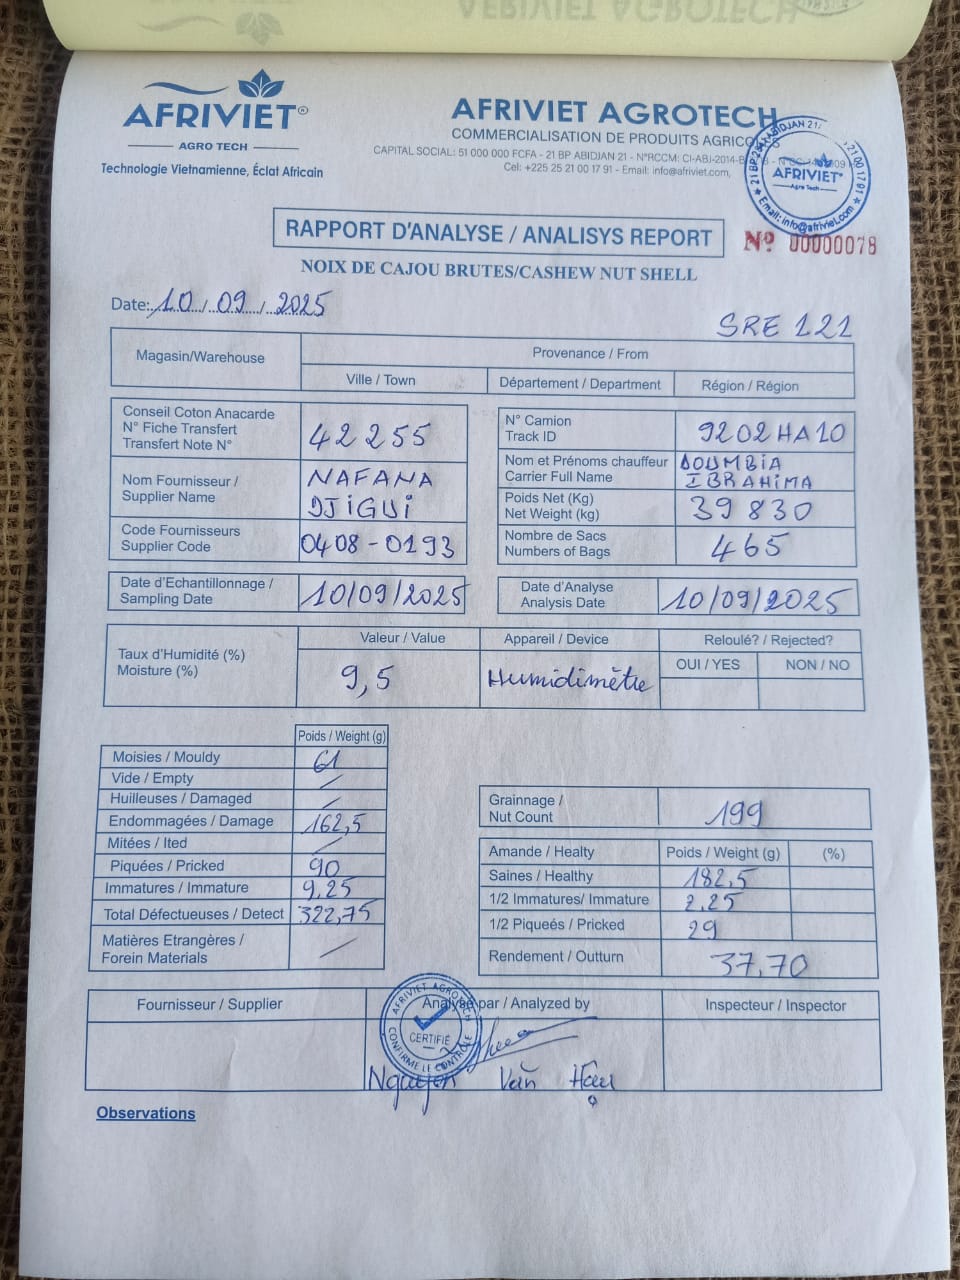 AFRIVIET AGROTECH
AFRIVIET®
AGRO TECH
Technologie Vietnamienne, Éclat Africain
AFRIVIET AGROTECH
COMMERCIALISATION DE PRODUITS AGRICOLES
CAPITAL SOCIAL: 51 000 000 FCFA - 21 BP ABIDJAN 21 - N°RCCM: CI-ABJ-2014-B
Cel: +225 25 21 00 17 91 - Email: info@afriviet.com,
AFRIVIET
Agro Tech
Email: info@afriviet.com
RAPPORT D'ANALYSE / ANALISYS REPORT
Nº 00000078
NOIX DE CAJOU BRUTES/CASHEW NUT SHELL
Date: 10 / 09 / 2025
SRE 121
Magasin/Warehouse
Provenance / From
Ville / Town
Département / Department
Région / Région
Conseil Coton Anacarde
N° Fiche Transfert
Transfert Note N°
42255
N° Camion
Track ID
9202HA10
Nom Fournisseur /
Supplier Name
NAFANA
DJIGUI
Nom et Prénoms chauffeur
Carrier Full Name
DOUMBIA
IBRAHIMA
Poids Net (Kg)
Net Weight (kg)
39 830
Code Fournisseurs
Supplier Code
0408-0193
Nombre de Sacs
Numbers of Bags
465
Date d'Echantillonnage /
Sampling Date
10/09/2025
Date d'Analyse
Analysis Date
10/09/2025
Taux d'Humidité (%)
Moisture (%)
Valeur / Value
9,5
Appareil / Device
Humidimètre
Reloulé? / Rejected?
OUI / YES
NON / NO
Poids / Weight (g)
Moisies / Mouldy 61
Vide / Empty /
Huilleuses / Damaged /
Endommagées / Damage 162,5
Mitées / Ited /
Piquées / Pricked 90
Immatures / Immature 9,25
Total Défectueuses / Detect 322,75
Matières Etrangères /
Forein Materials /
Grainnage /
Nut Count
199
Amande / Healty Poids / Weight (g) (%)
Saines / Healthy 182,5
1/2 Immatures/ Immature 2,25
1/2 Piqueés / Pricked 29
Rendement / Outturn 37,70
Fournisseur / Supplier
Analysé par / Analyzed by
Inspecteur / Inspector
AFRIVIET AGROTECH
CERTIFIÉ
CONFIRME LE CONTRÔLE
Nguyen Văn Hậu
Observations